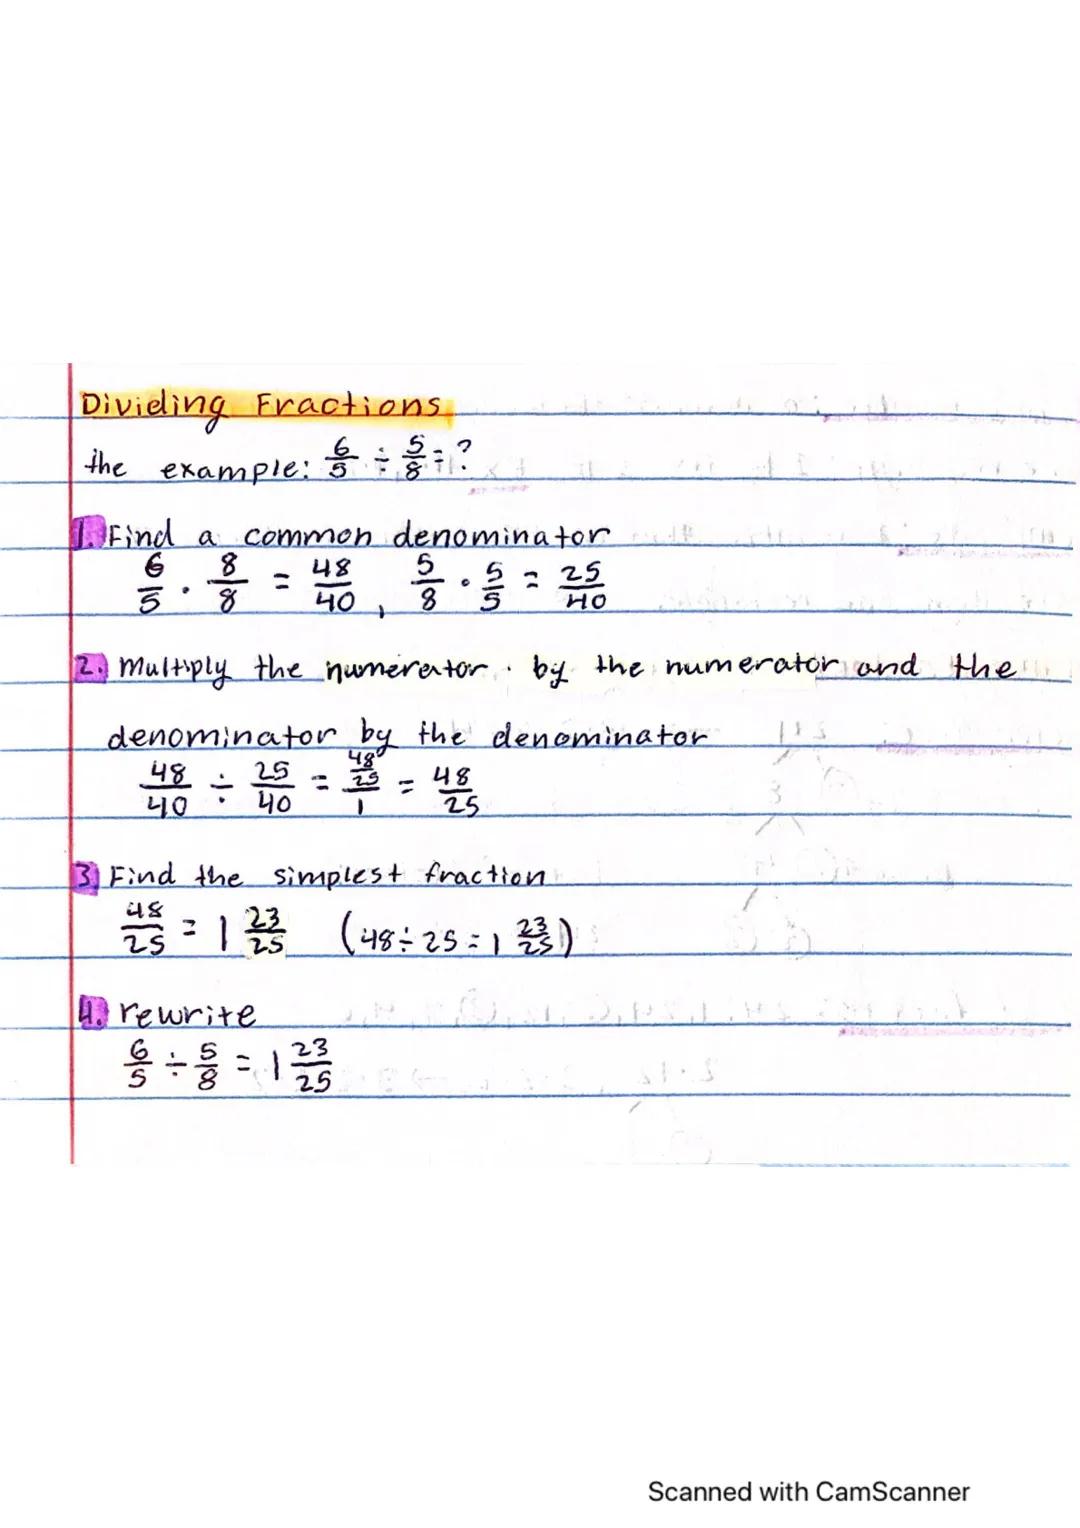 Dividing Fractions
the example: 6/5 ÷ 5/8 = ?
1. Find a common denominator
6/5 · 8/8 = 48/40, 5/8 · 5/5 = 25/40
2. Multiply the numerator · by the numerator and the
denominator by the denominator
48/40 ÷ 25/40 = (48/25)/1 = 48/25
3. Find the simplest fraction
48/25 = 1 23/25 (48 ÷ 25 = 1 23/25)
4. rewrite
6/5 ÷ 5/8 = 1 23/25
Scanned with CamScanner